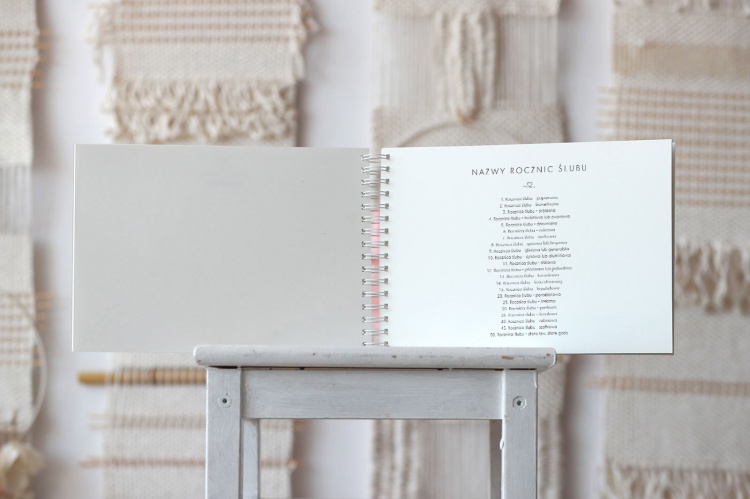 NAZWY ROCZNIC ŚLUBU
1. Rocznica ślubu - papierowa
2. Rocznica ślubu - bawełniana
3. Rocznica ślubu - skórzana
4. Rocznica ślubu - kwiatowa lub owocowa
5. Rocznica ślubu - drewniana
6. Rocznica ślubu - cukrowa
7. Rocznica ślubu - wełniana
8. Rocznica ślubu - spiżowa lub brązowa
9. Rocznica ślubu - gliniana lub generalska
10. Rocznica ślubu - cynowa lub aluminiowa
11. Rocznica ślubu - stalowa
12. Rocznica ślubu - płócienna lub jedwabna
13. Rocznica ślubu - koronkowa
14. Rocznica ślubu - kości słoniowej
15. Rocznica ślubu - kryształowa
20. Rocznica ślubu - porcelanowa
25. Rocznica ślubu - srebrna
30. Rocznica ślubu - perłowa
35. Rocznica ślubu - koralowa
40. Rocznica ślubu - rubinowa
45. Rocznica ślubu - szafirowa
50. Rocznica ślubu - złote